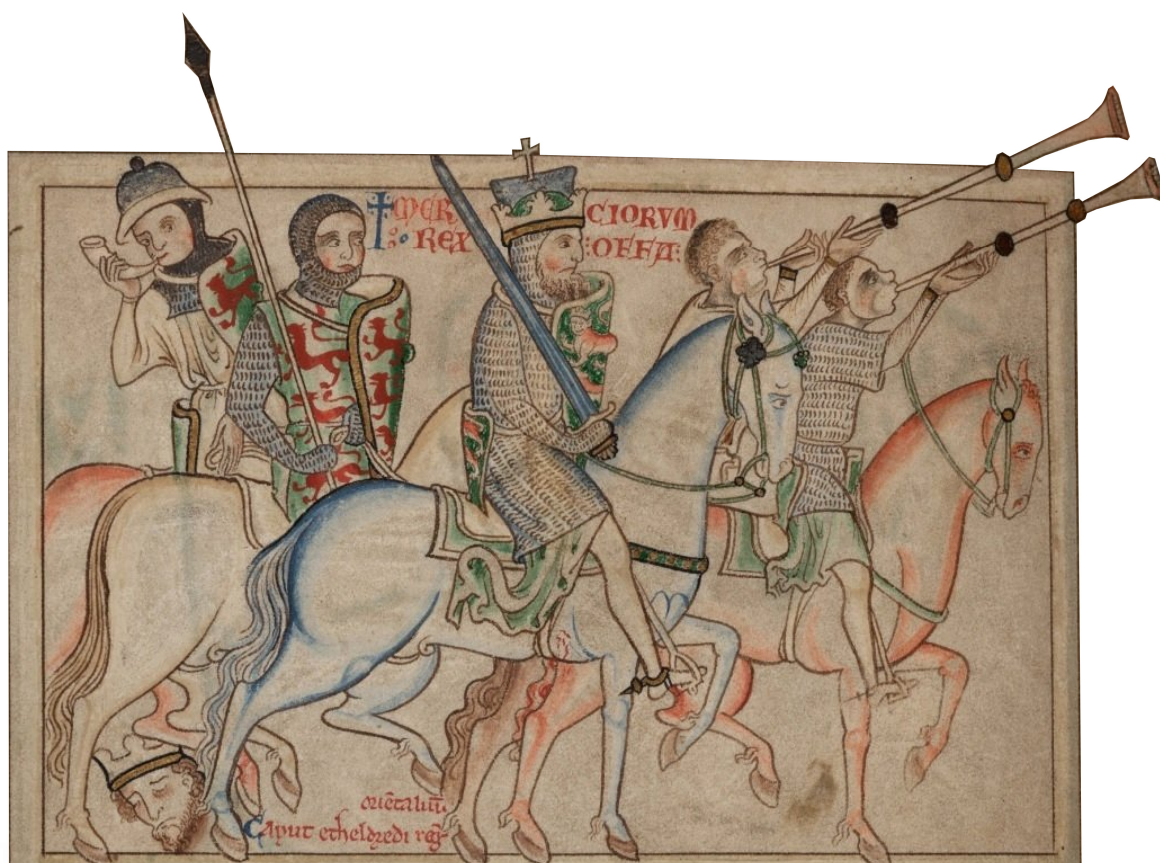 MER CIORVM
REX :OFFA:
oriētaliū
Caput etheldredi reḡ